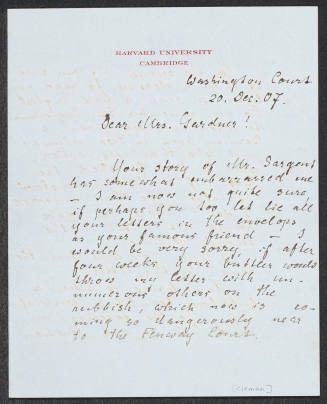 HARVARD UNIVERSITY
CAMBRIDGE
Washington Court
20. Dec. 07.
Dear Mrs. Gardner!
Your story of Mr. Sargent
has somewhat embarrassed me
– I am now not quite sure
if perhaps you too let lie all
your letters in the envelops
as your famous friend – I
would be very sorry if after
four weeks your buttler would
throw my letter with in-
numerous others on the
rubbish, which now is co-
ming so dangerously near
to the Fenway Court.